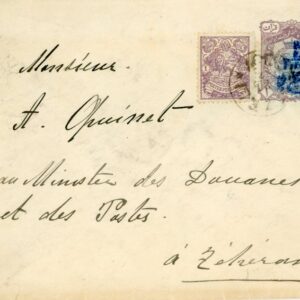 Monsieur
A. Quisset
au Ministère des Douanes
et des Postes.
à Téhéran